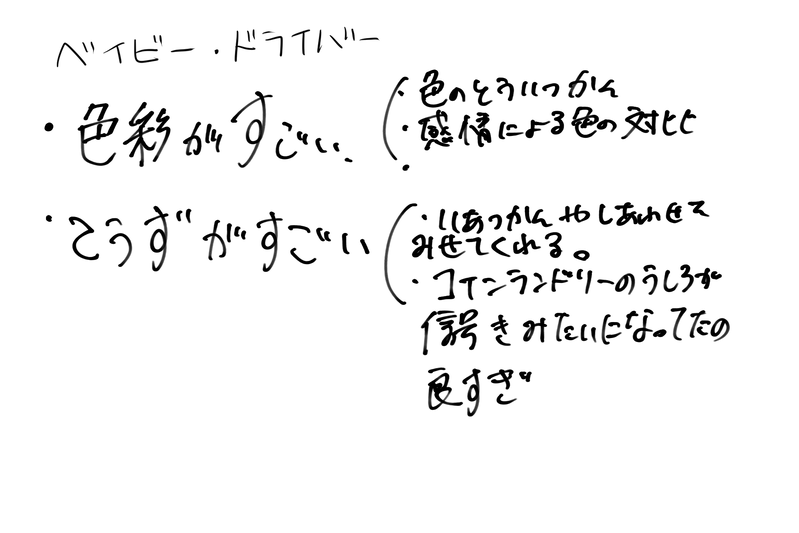 ベイビー・ドライバー
・色彩がすごい
・色のとういつかん
・感情による色の対比
・こうずがすごい
・いあつかんやしあわせを
みせてくれる。
・コインランドリーのうしろが
信号きみたいになってたの
良すぎ